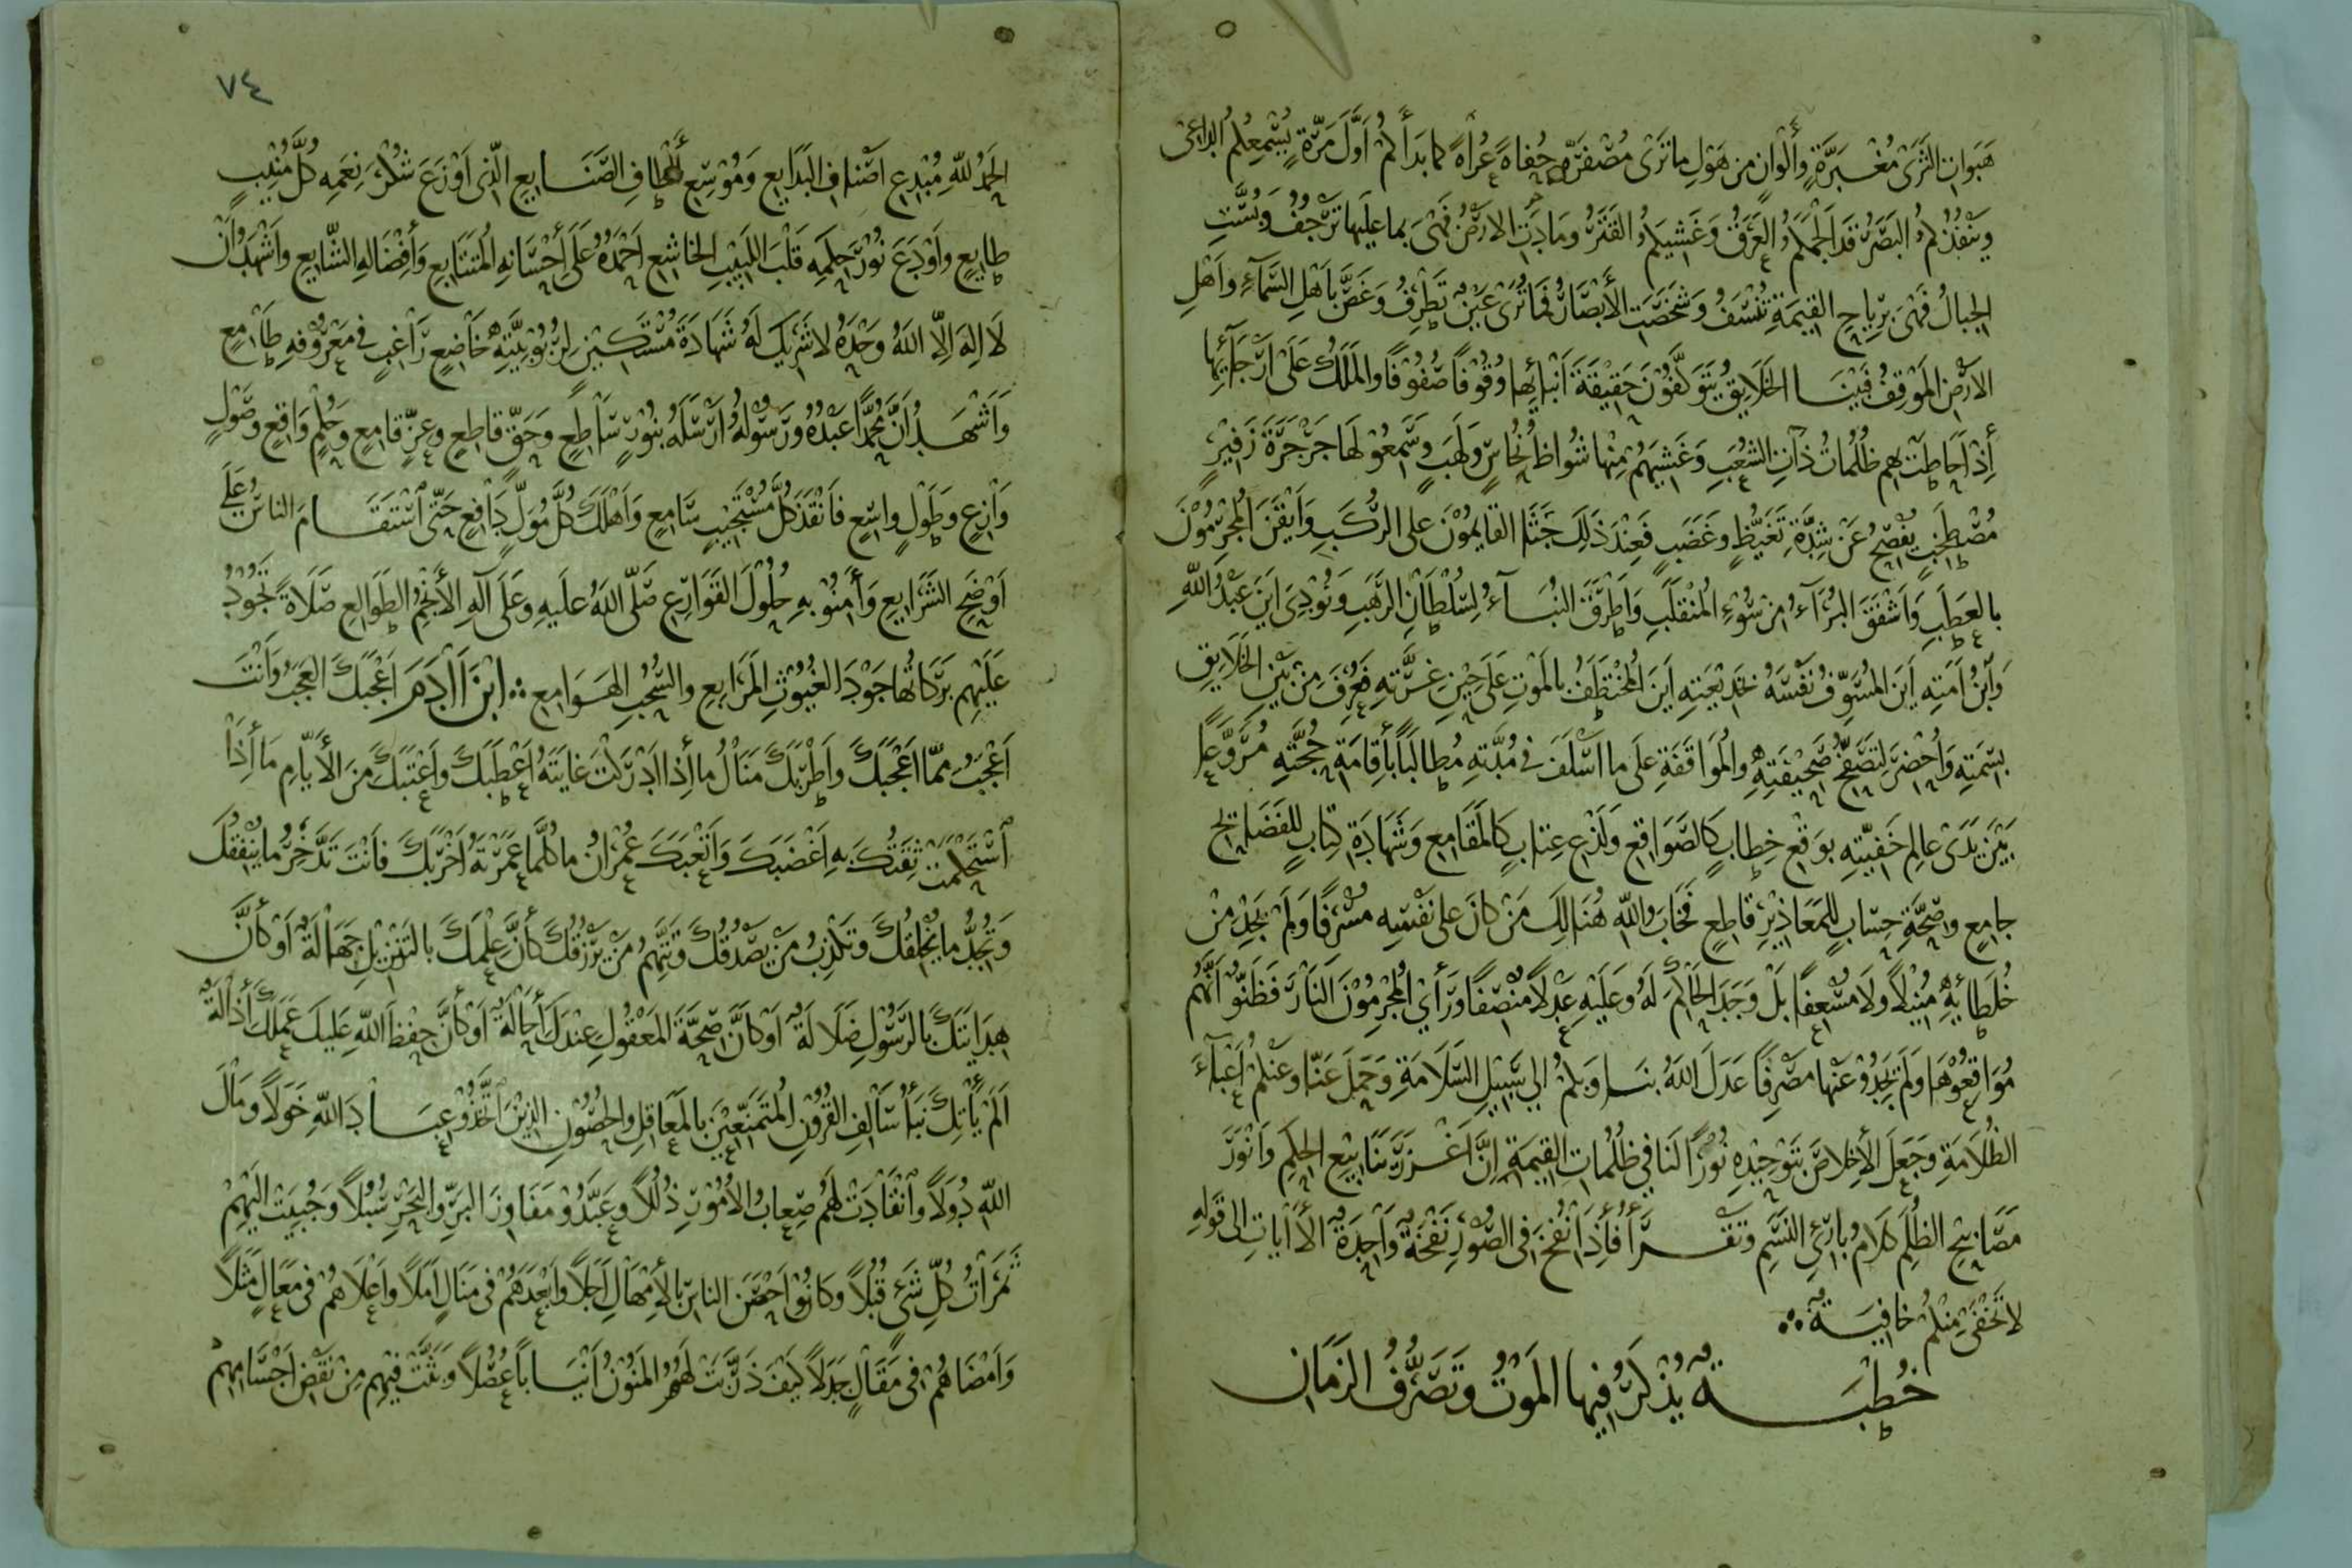 هَبَوَاتِ الثَّرَى مُغْبَرَّةٍ وَأَلْوَانٍ مِنْ هَوْلِ مَا تَرَى مُصْفَرَّةٍ حُفَاةً عُرَاةً كَمَا بَدَأَكُمْ أَوَّلَ مَرَّةٍ يُسْمِعُكُمُ الدَّاعِي
وَيَنْفُذُكُمُ الْبَصَرُ قَدْ أَلْجَمَكُمُ الْعَرَقُ وَغَشِيَكُمُ الْقَتَرُ وَمَادَتِ الْأَرْضُ فَهِيَ بِمَا عَلَيْهَا تَرْجُفُ وَبُسَّتِ
الْجِبَالُ فَهِيَ بِرِيَاحِ الْقِيَمَةِ تُنْسَفُ وَشَخَصَتِ الْأَبْصَارُ فَمَا تُرَى عَيْنٌ تَطْرِفُ وَغَصَّ بِأَهْلِ السَّمَاءِ وَأَهْلِ
الْأَرْضِ الْمَوْقِفُ فَبَيْنَا الْخَلَايِقُ يَتَوَكَّفُونَ حَقِيقَةَ أَنْبَائِهَا وُقُوفًا صُفُوفًا وَالْمَلَكُ عَلَى أَرْجَائِهَا
إِذْ أَحَاطَتْ بِهِمْ ظُلُمَاتُ ذَاتِ الشُّعَبِ وَغَشِيَهُمْ مِنْهَا شُوَاظُ نُحَاسٍ وَلَهَبٍ وَسَمِعُوْ لَهَا جَرْجَرَةَ زَفِيرٍ
مُصْطَخِبٍ يُفْصِحُ عَنْ شِدَّةِ تَغَيُّظٍ وَغَضَبٍ فَعِنْدَ ذَلِكَ جَثَا الْقَايِمُونَ عَلَى الرُّكَبِ وَأَيْقَنَ الْمُجْرِمُونَ
بِالْعَطَبِ وَأَشْفَقَ الْبُرَآءُ مِنْ سُوْءِ الْمُنْقَلَبِ وَأَطْرَقَ النُّبَآءُ لِسُلْطَانِ الرَّهَبِ وَنُودِيَ أَيْنَ عَبْدُ اللَّهِ
وَابْنُ أَمَتِهِ أَيْنَ الْمُسَوِّفُ نَفْسَهُ بِخَدِيعَتِهِ أَيْنَ الْمُخْتَطَفُ بِالْمَوْتِ عَلَى حِيْنِ غِرَّتِهِ فَعُرِفَ مِنْ بَيْنِ الْخَلَايِقِ
بِسِمَتِهِ وَأُحْضِرَ لِتَصَفُّحِ صَحِيفَتِهِ وَالْمُوَاقَفَةِ عَلَى مَا أَسْلَفَ فِي مُدَّتِهِ مُطَالَبًا بِأِقَامَةِ حُجَّتِهِ مُرَوَّعًا
بَيْنَ يَدَيْ عَالِمِ خَفِيَّتِهِ بِوَقْعِ خِطَابٍ كَالصَّوَاقِعِ وَلَذْعِ عِتَابٍ كَالْمَقَامِعِ وَشَهَادَةِ كِتَابٍ لِلْفَضَايِحِ
جَامِعٍ وَصِحَّةِ حِسَابٍ لِلْمَعَاذِيْرِ قَاطِعٍ فَخَابَ وَاللَّهِ هُنَالِكَ مَنْ كَانَ عَلَى نَفْسِهِ مُسْرِفًا وَلَمْ يَجِدْ مِنْ
خُلَطَائِهِ مُنِيْلًا وَلَا مُسْعِفًا بَلْ وَجَدَ الْحَاكِمَ لَهُ وَعَلَيْهِ عَدْلًا مُنْصِفًا وَرَأَى الْمُجْرِمُونَ النَّارَ فَظَنُّوْا أَنَّهُمْ
مُوَاقِعُوْهَا وَلَمْ يَجِدُوْ عَنْهَا مَصْرِفًا عَدَلَ اللَّهُ بِنَا وَبِكُمْ إِلَى سَبِيْلِ السَّلَامَةِ وَحَمَلَ عَنَّا وَعَنْكُمْ أَعْبَاءَ
الظُّلَامَةِ وَجَعَلَ الْأِخْلَاصَ بِتَوْحِيْدِهِ نُوْرًا لَنَا فِي ظُلُمَاتِ الْقِيَمَةِ إِنَّ أَغْزَرَ يَنَابِيْعِ الْحِكَمِ وَأَنْوَرَ
مَصَابِيْحِ الظُّلَمِ كَلَامُ بَارِئِ النَّسَمِ وَتَقْرَأُ فَأِذَا نُفِخَ فِي الصُّوْرِ نَفْخَةٌ وَاحِدَةٌ الْأَايَاتِ إِلَى قَوْلِهِ
لَا تَخْفَى مِنْكُمْ خَافِيَةٌ ∴
خُطْبَةٌ يُذْكَرُ فِيهَا الْمَوْتُ وَتَصَرُّفُ الزَّمَانِ
٧٤
الْحَمْدُ لِلَّهِ مُبْدِعِ أَصْنَافِ الْبَدَايِعِ وَمُوْسِعِ أَلْطَافِ الصَّنَايِعِ الَّذِي أَوْزَعَ شُكْرَ نِعَمِهِ كُلَّ مُنِيْبٍ
طَايِعٍ وَأَوْدَعَ نُوْرَ حِكَمِهِ قَلْبَ اللَّبِيْبِ الْخَاشِعِ أَحْمَدُهُ عَلَى أِحْسَانِهِ الْمُتَتَابِعِ وَأَفْضَالِهِ الشَّايِعِ وَأَشْهَدُ أَنْ
لَا إِلَهَ إِلَّا اللَّهُ وَحْدَهُ لَا شَرِيْكَ لَهُ شَهَادَةَ مُسْتَكِيْنٍ لِرُبُوْبِيَّتِهِ خَاضِعٍ رَاغِبٍ فِي مَعْرُوْفِهِ طَامِعٍ
وَأَشْهَدُ أَنَّ مُحَمَّدًا عَبْدُهُ وَرَسُوْلُهُ أَرْسَلَهُ بِنُوْرٍ سَاطِعٍ وَحَقٍّ قَاطِعٍ وَعِزٍّ قَامِعٍ وَحِلْمٍ وَاقِعٍ وَصَوْلٍ
وَازِعٍ وَطَوْلٍ وَاسِعٍ فَأَنْقَذَ كُلَّ مُسْتَجِيْبٍ سَامِعٍ وَأَهْلَكَ كُلَّ مُوَلٍّ دَافِعٍ حَتَّى اسْتَقَامَ النَّاسُ عَلَى
أَوْضَحِ الشَّرَايِعِ وَأَمِنُوْ بِهِ حُلُوْلَ الْقَوَارِعِ صَلَّى اللَّهُ عَلَيْهِ وَعَلَى آلِهِ الْأَنْجُمِ الطَّوَالِعِ صَلَاةً تَجُوْدُ
عَلَيْهِمْ بَرَكَاتُهَا جَوْدَ الْغُيُوْثِ الْمَرَابِعِ وَالسُّحُبِ الْهَوَامِعِ ∴ ابْنَ اَادَمَ أَعْجَبَكَ الْعَجَبُ وَأَنْتَ
أَعْجَبُ مِمَّا أَعْجَبَكَ وَأَطْرَبَكَ مَنَالُ مَا أِذَا أَدْرَكْتَ غَايَتَهُ أَعْطَبَكَ وَأَعْتَبَكَ مِنَ الْأَيَّامِ مَا أِذَا
اسْتَحْكَمَتْ ثِقَتُكَ بِهِ أَغْضَبَكَ وَأَتْعَبَكَ عُمْرَانُ مَا كُلَّمَا عَمَرْتَهُ أَخْرَبَكَ فَأَنْتَ تَدَّخِرُ مَا يُثْقِلُكَ
وَتُجِدُّ مَا يُخْلِقُكَ وَتُكَذِّبُ مَنْ يَصْدُقُكَ وَتَتَّهِمُ مَنْ يَرْزُقُكَ كَأَنَّ عِلْمَكَ بِالتَّنْزِيْلِ جَهَالَةٌ أَوْ كَأَنَّ
هِدَايَتَكَ بِالرَّسُوْلِ ضَلَالَةٌ أَوْ كَأَنَّ صِحَّةَ الْمَعْقُوْلِ عِنْدَكَ أِحَالَةٌ أَوْ كَأَنَّ حِفْظَ اللَّهِ عَلَيْكَ عَمَلَكَ أِذَالَةٌ
أَلَمْ يَأْتِكَ نَبَأُ سَالِفِ الْقُرُوْنِ الْمُتَمَنِّعِيْنَ بِالْمَعَاقِلِ وَالْحُصُوْنِ الَّذِيْنَ اتَّخَذُوْ عِبَادَ اللَّهِ خَوَلًا وَمَالَ
اللَّهِ دُوَلًا وَانْقَادَتْ لَهُمْ صِعَابُ الْأُمُوْرِ ذُلُلًا وَعَبَّدُوْ مَفَاوِزَ الْبَرِّ وَالْبَحْرِ سُبُلًا وَجُبِيَتْ إِلَيْهِمْ
ثَمَرَاتُ كُلِّ شَيْءٍ قُبُلًا وَكَانُوْا أَحْصَنَ النَّاسِ بِالْأِمْهَالِ أَجَلًا وَأَبْعَدَهُمْ فِي مَنَالٍ أَمَلًا وَأَعْلَاهُمْ فِي مَعَالٍ مَثَلًا
وَأَمْضَاهُمْ فِي مَقَالٍ جَدَلًا كَيْفَ ذَرَّتْ لَهُمُ الْمَنُوْنُ أَنْيَابًا عُصُلًا وَبَثَّتْ فِيْهِمْ مِنْ نَقْضِ أَجْسَامِهِمْ